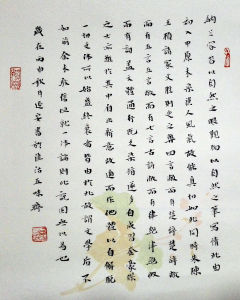 納蘭容若以自然之眼觀物以自然之筆寫情此由
初入中原未染漢人風氣故能真切如此同時朱陳
王顧諸家文勝則史之弊四言敝而有楚辭楚辭敝
而有五言五言敝而有七言古詩敝而有律絕律絕敝
而有詞蓋文體通行既久染指遂多自成習套豪傑
之士亦難於其中自出新意故遁而作他體以自解脫
一切文體所以始盛終衰者皆由於此故謂文學后不
如前余未敢信但就一體論則此說固無以易也
歲在丙申秋月書於五味齋